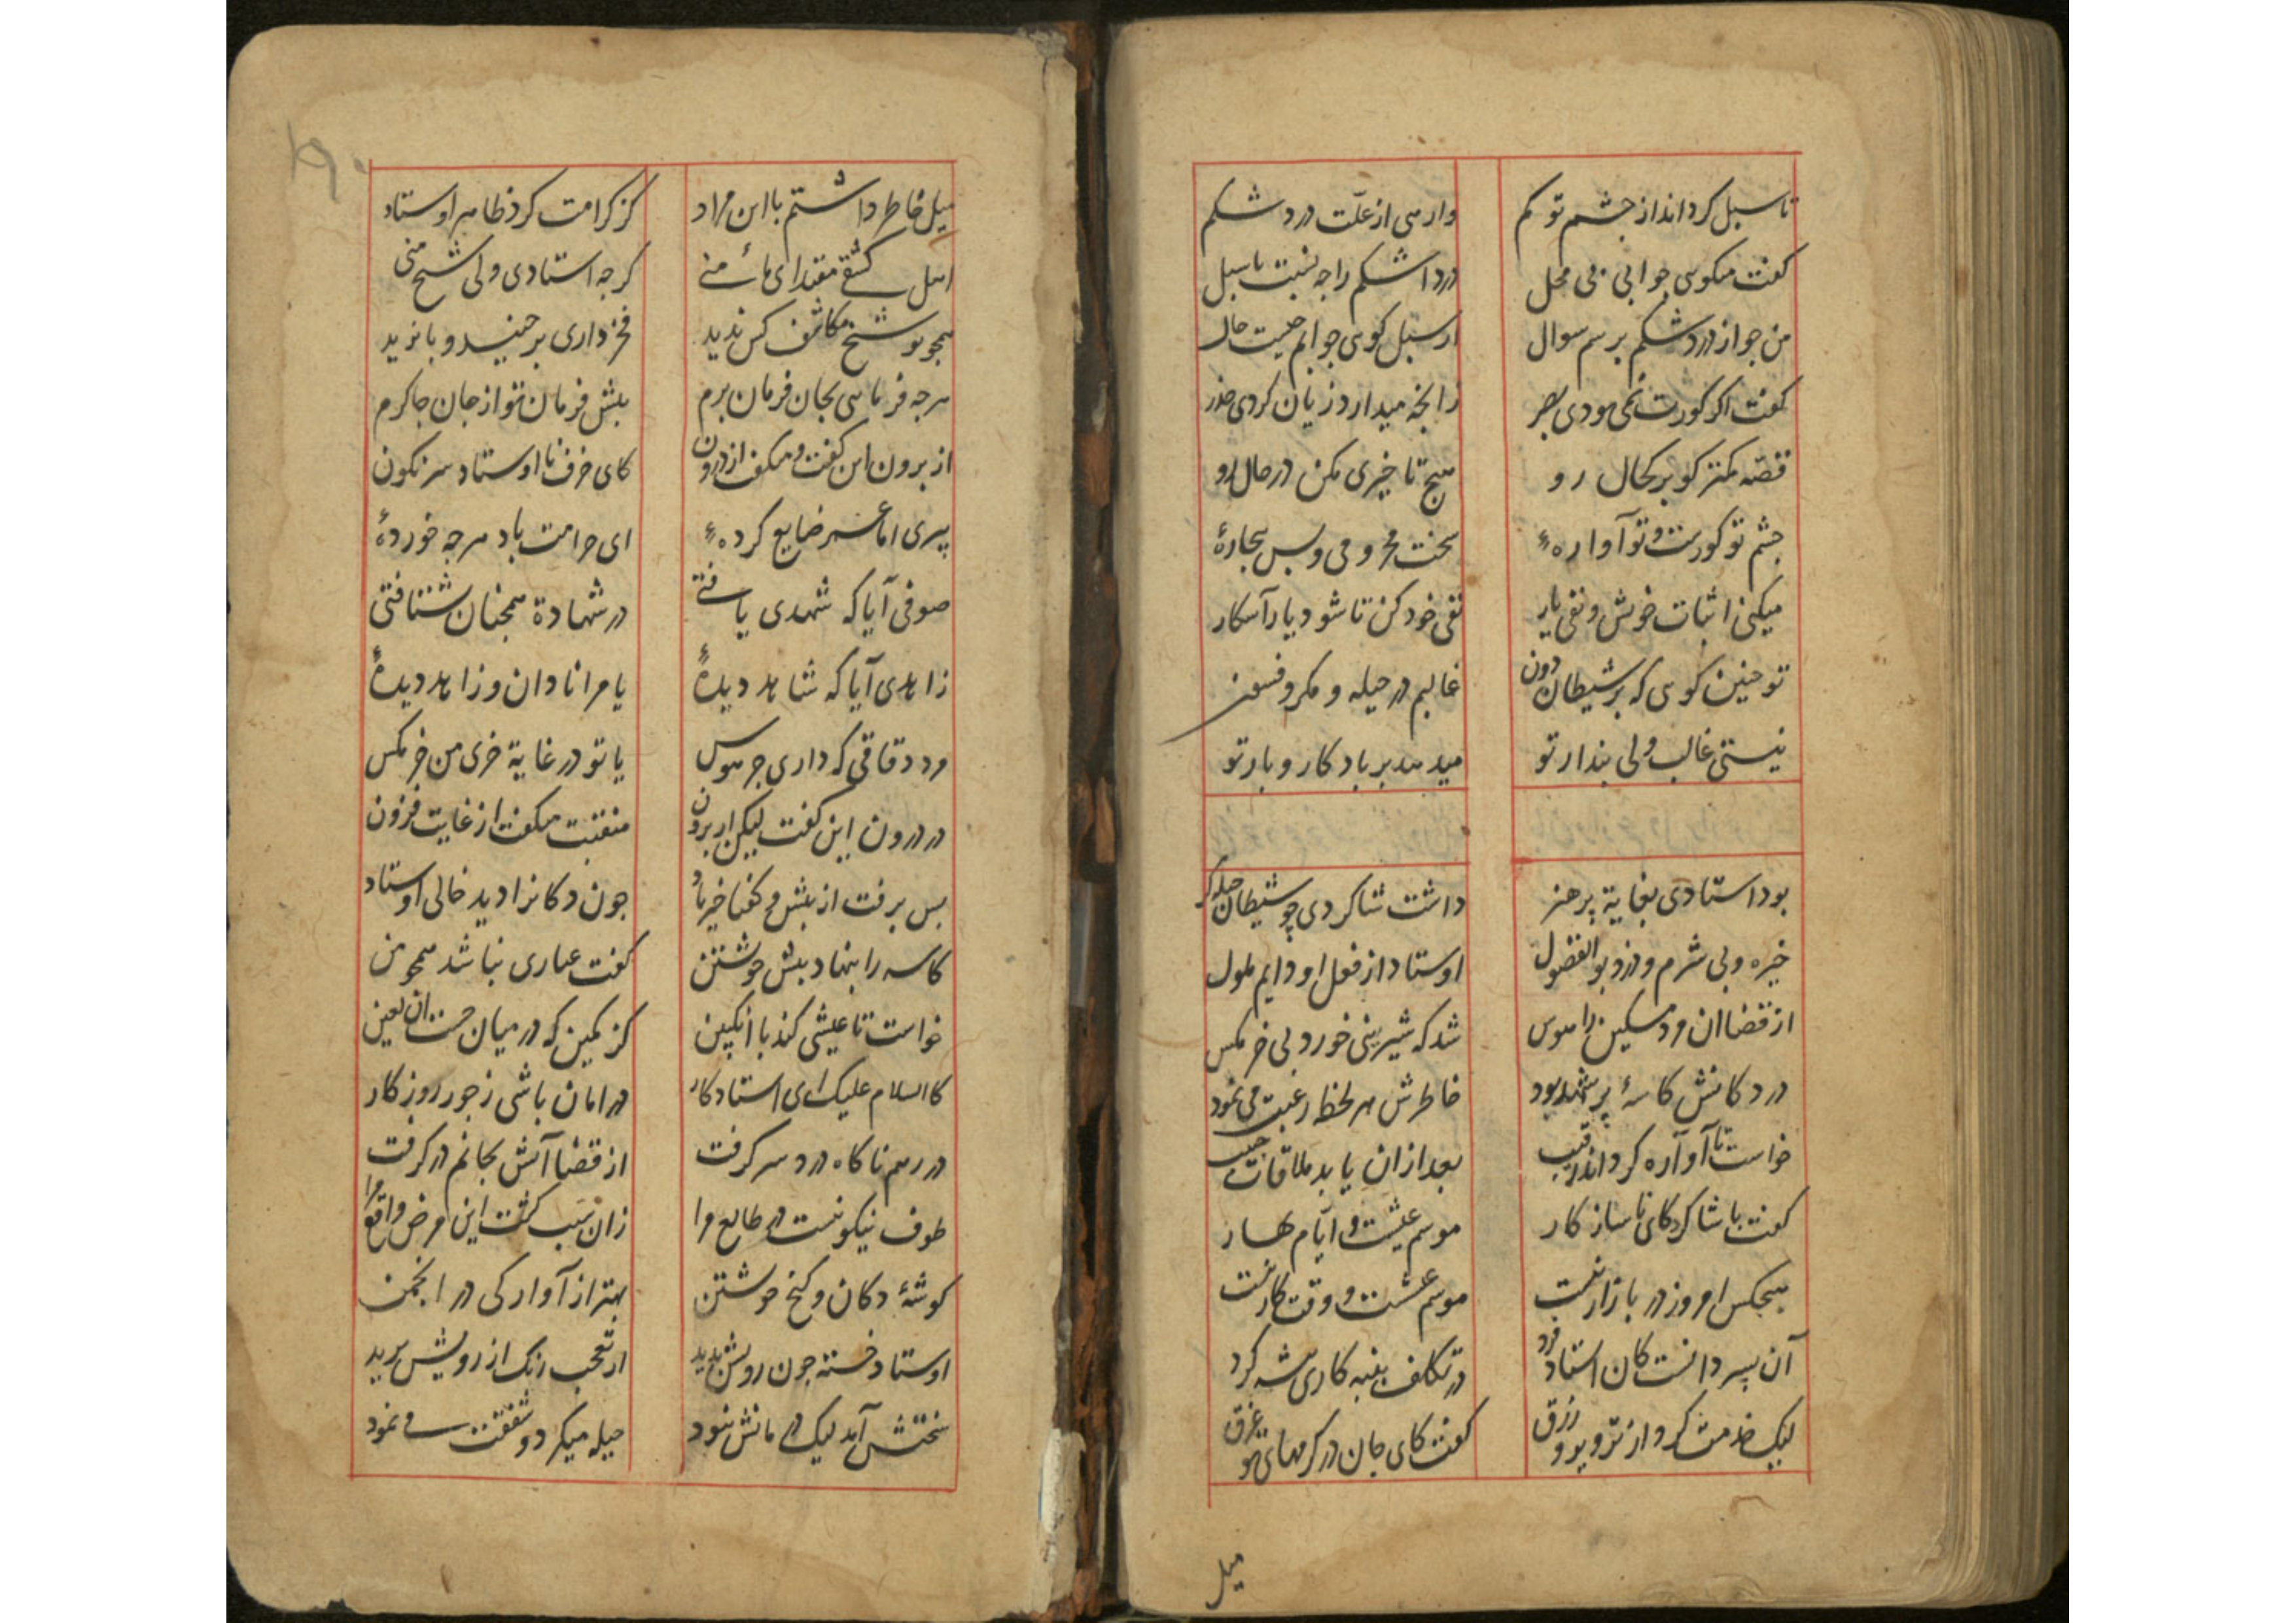 تا سبل کرداند از جشم تو کم
وارهی از علّت درد شکم
کفت میکوی جوابی بی محل
درد اشکم را جه نسبت با سبل
من جو از درد شکم برسم سوال
از سبل کوی جوابم جیست حال
کفت اکر کورت نمی بودی بصر
زانجه میدارد زیان کردی حذر
قصّه کمتر کو بر کحال رو
هیج تاخیری مکن در حال رو
جشم تو کورست و تو آواره‌ء
سخت محرومی و بس بیجارهٔ
میکنی اثبات خویش و نفی یار
نفی خود کن تا شود یار آشکار
تو جنین کوی که بر شیطان دون
غالبم در حیله و مکر و فسون
نیستی غالب ولی بندار تو
میدهد بر باد کار و بار تو
بود استادی بغایة پر هنر
داشت شاکردی چو شیطان حیله کر
خیره و بی شرم و دزد و بوالفضول
اوستاد از فعل او دایم ملول
از قضا ان مرد مسکین را هوس
شد که شیرینی خورد بی خرمکس
در دکانش کاسهٔ پر شهد بود
خاطرش هر لحظه رغبت می نمود
خواست تا آواره کرداند رقیب
بعد از ان یابد ملاقات حبیب
کفت با شاکرد کای ناسازکار
موسم عیشت و ایّام بهار
هیجکس امروز در بازار نیست
موسم عیشست و وقت کار نیست
آن پسر دانست کان استاد فرد
در تکلف بنبه کاری بیشه کرد
لیک خدمت کرد از تزویر و زرق
کفت کای جان در کرمهای تو غرق
میل
میل خاطر داشتم با این مراد
کز کرامت کرد ظاهر اوستاد
کشتی مقتدای مائے منے
کرجه استادی ولی شیخ منی
همجو تو شیخ مکاشف کس ندید
فخر داری بر جنید و بایزید
هرجه فرمای بجان فرمان برم
بیش فرمان تو از جان جاکرم
از برون این کفت و میکفت از درون
کای خرف نا اوستاد سرنکون
پیری اما عمر ضایع کرده‌ء
ای حرامت باد هرجه خوردهٔ
صوفی آیا که شهدی یافتے
در شهادة همجنان شتافتی
زاهدی آیا که شاهد دیدهٔ
یا مرا نادان و زاهد دیدهٔ
مرد دقاقی که داری جر هوس
یا تو در غایة خری من خرمکس
در درون این کفت لیکن از برون
منقبت میکفت از غایت فزون
بس برفت از بیش و کفتا خیر باد
جون دکانرا دید خالی اوستاد
کاسه را بنهاد بیش خویشتن
کفت عیاری نباشد همجو من
خواست تا عیشی کند با انکبین
کز کمین که در میان جست ان لعین
کالسلام علیک ای استاد کار
در امان باشی ز جور روزکار
در رهم ناکاه درد سر کرفت
از قضا آتش بجانم در کرفت
طوف نیکو نیست در طالع مرا
زان سبب کشت این مرض واقع مرا
کوشهٔ دکان و کنج خویشتن
بهتر از آوارکی در انجمن
اوستاد خسته جون رویش بدید
از تعجب رنک از رویش برید
سختش آمد لیک درمانش نبود
حیله میکرد و شفقت مے نمود